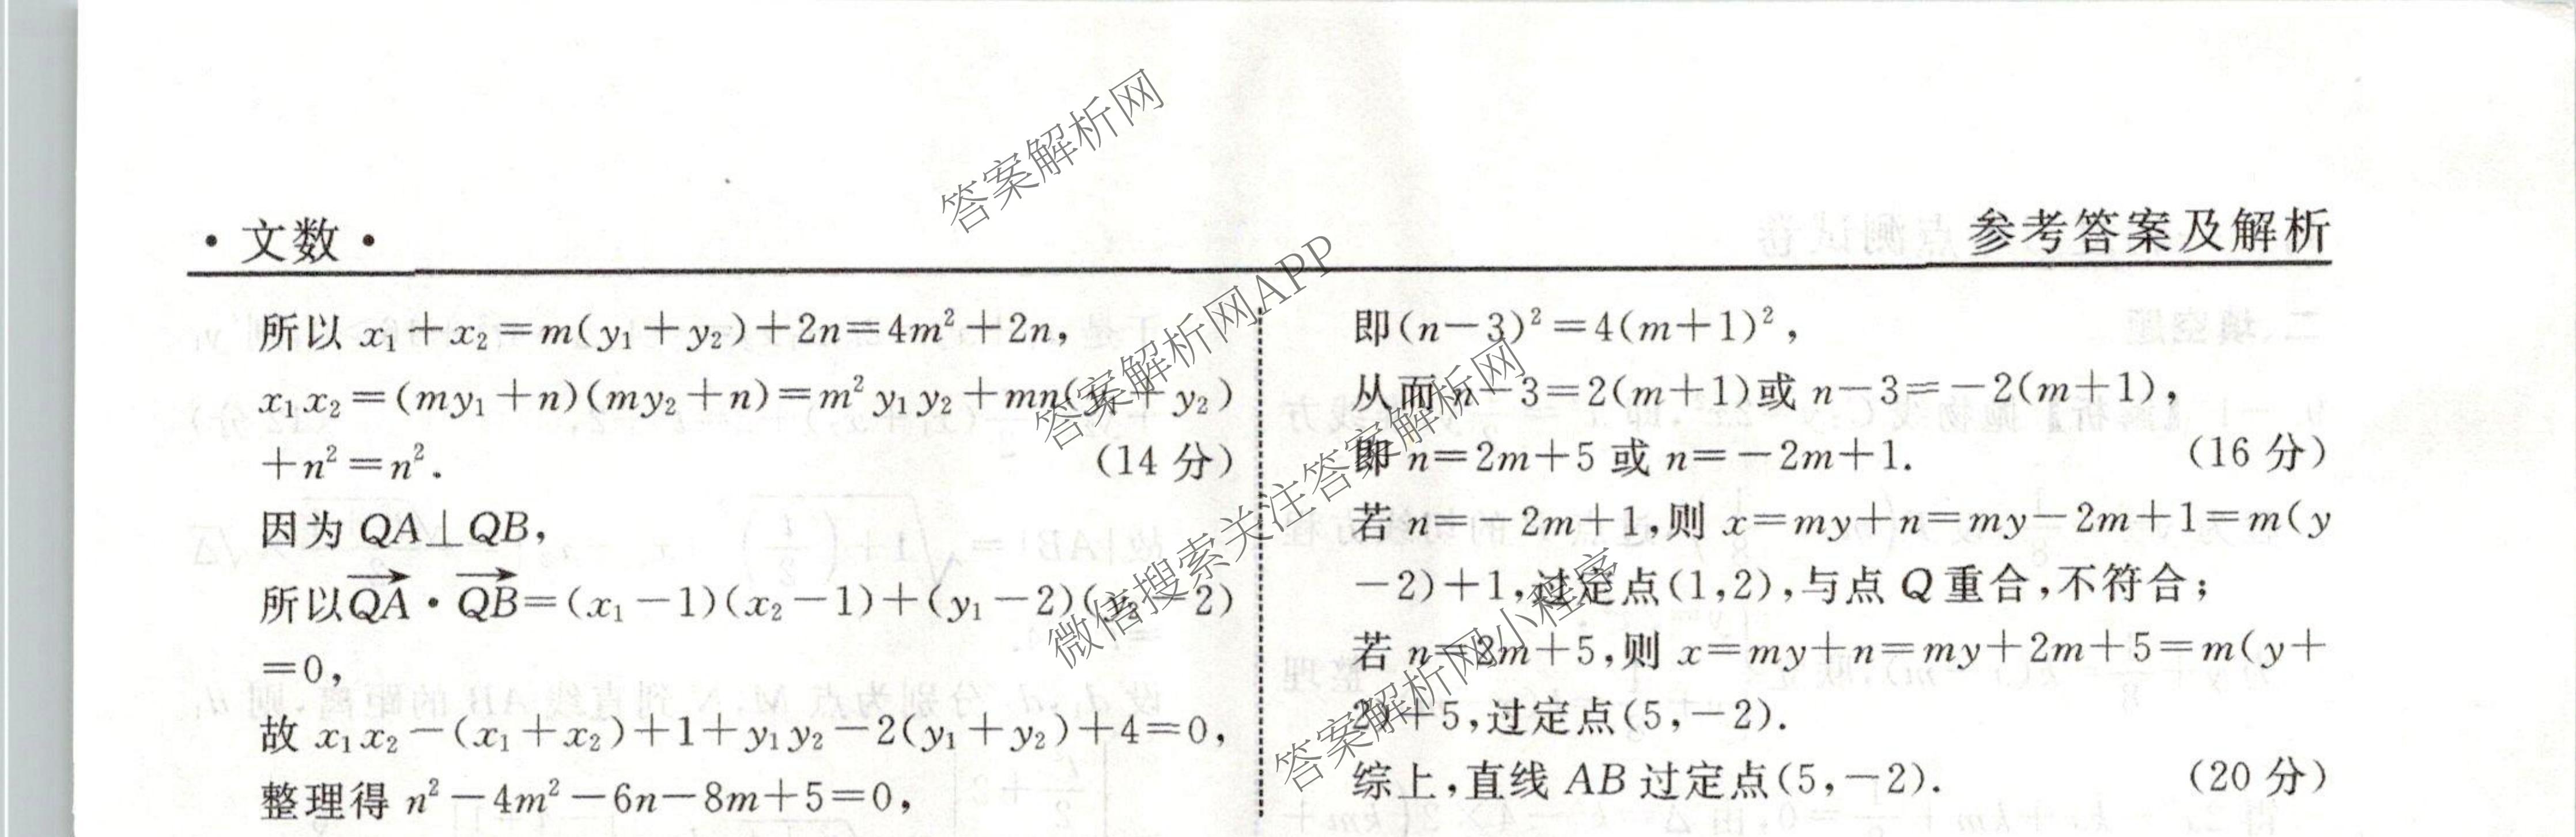 ·文数·
参考答案及解析
所以 x₁+x₂=m(y₁+y₂)+2n=4m²+2n,
x₁x₂=(my₁+n)(my₂+n)=m²y₁y₂+mn(y₁+y₂)
+n²=n².(14 分)
因为 QA⊥QB,
所以QA→·QB→=(x₁-1)(x₂-1)+(y₁-2)(y₂-2)
=0,
故 x₁x₂-(x₁+x₂)+1+y₁y₂-2(y₁+y₂)+4=0,
整理得 n²-4m²-6n-8m+5=0,
即(n-3)²=4(m+1)²,
从而 n-3=2(m+1)或 n-3=-2(m+1),
即 n=2m+5 或 n=-2m+1.(16 分)
若 n=-2m+1,则 x=my+n=my-2m+1=m(y
-2)+1,过定点(1,2),与点 Q 重合,不符合;
若 n=2m+5,则 x=my+n=my+2m+5=m(y+
2)+5,过定点(5,-2).
综上,直线 AB 过定点(5,-2).(20 分)
答案解析网
答案解析网APP
微信搜索关注答案解析网
答案解析网小程序